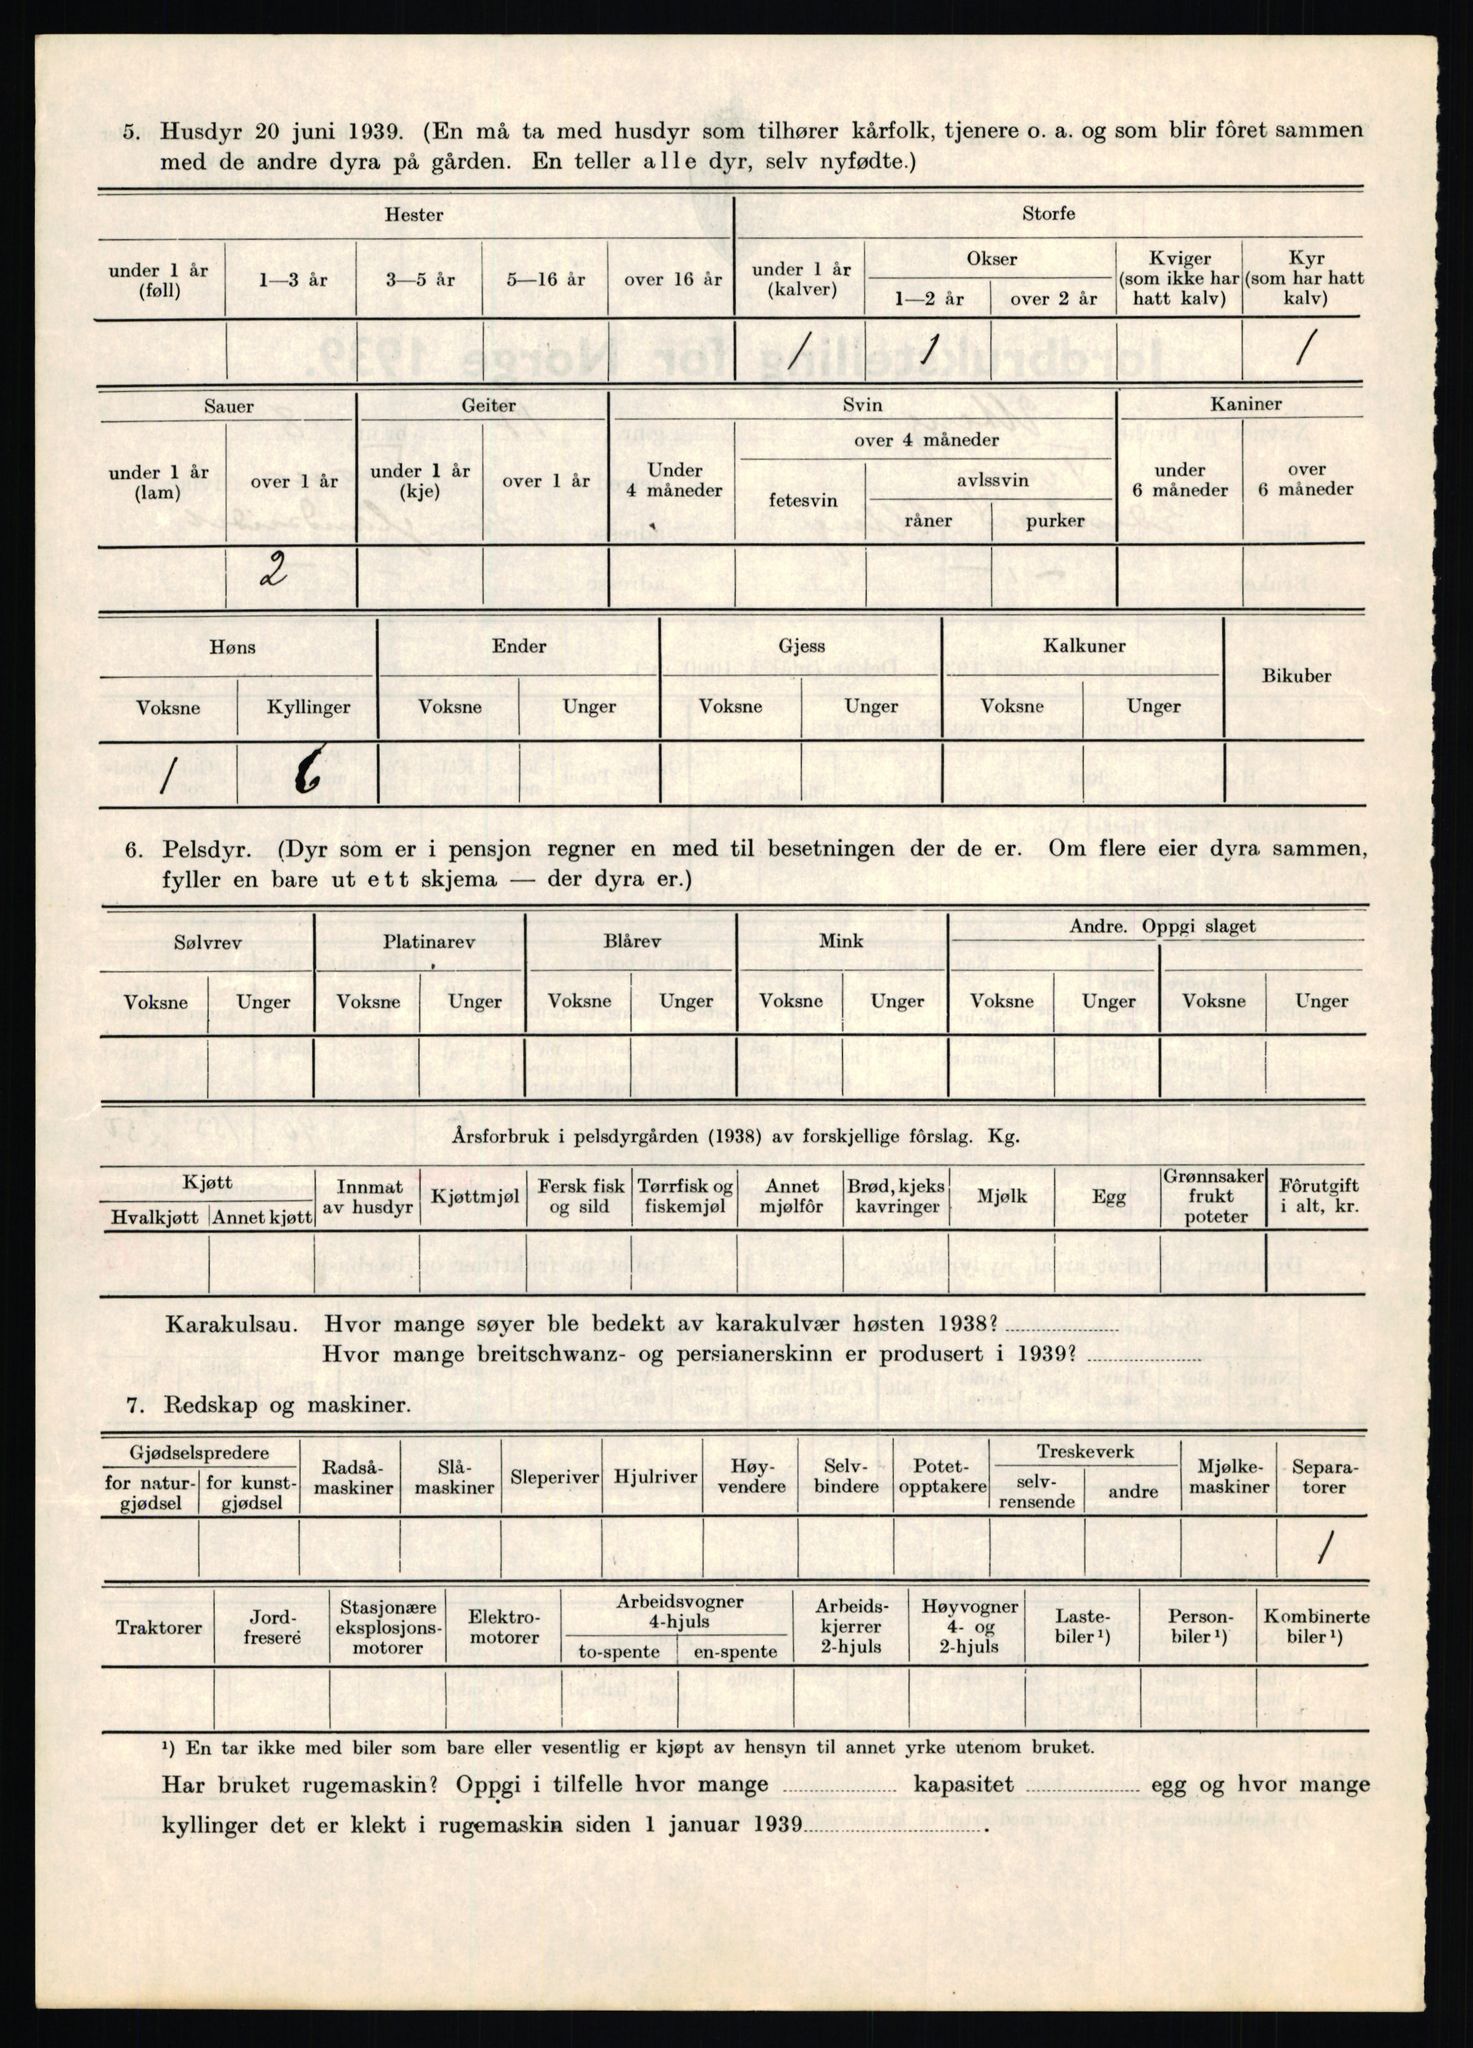 5. Husdyr 20 juni 1939. (En må ta med husdyr som tilhører kårfolk, tjenere o. a. og som blir fôret sammen
med de andre dyra på gården. En teller alle dyr, selv nyfødte.)
Hester Storfe
under 1 år (føll) 1—3 år 3—5 år 5—16 år over 16 år under 1 år (kalver) Okser 1—2 år over 2 år Kviger (som ikke har hatt kalv) Kyr (som har hatt kalv)
1 1 1
Sauer Geiter Svin Kaniner
under 1 år (lam) over 1 år under 1 år (kje) over 1 år Under 4 måneder over 4 måneder fetesvin avlssvin råner purker under 6 måneder over 6 måneder
2
Høns Ender Gjess Kalkuner Bikuber
Voksne Kyllinger Voksne Unger Voksne Unger Voksne Unger
1 6
6. Pelsdyr. (Dyr som er i pensjon regner en med til besetningen der de er. Om flere eier dyra sammen,
fyller en bare ut ett skjema — der dyra er.)
Sølvrev Platinarev Blårev Mink Andre. Oppgi slaget
Voksne Unger Voksne Unger Voksne Unger Voksne Unger Voksne Unger Voksne Unger
Årsforbruk i pelsdyrgården (1938) av forskjellige fôrslag. Kg.
Kjøtt Hvalkjøtt Annet kjøtt Innmat av husdyr Kjøttmjøl Fersk fisk og sild Tørrfisk og fiskemjøl Annet mjølfôr Brød, kjeks kavringer Mjølk Egg Grønnsaker frukt poteter Fôrutgift i alt, kr.
Karakulsau. Hvor mange søyer ble bedekt av karakulvær høsten 1938?
Hvor mange breitschwanz- og persianerskinn er produsert i 1939?
7. Redskap og maskiner.
Gjødselspredere for natur-gjødsel for kunst-gjødsel Radså-maskiner Slå-maskiner Sleperiver Hjulriver Høy-vendere Selv-bindere Potet-opptakere Treskeverk selv-rensende andre Mjølke-maskiner Separa-torer
1
Traktorer Jord-fresere Stasjonære eksplosjons-motorer Elektro-motorer Arbeidsvogner 4-hjuls to-spente en-spente Arbeids-kjerrer 2-hjuls Høyvogner 4- og 2-hjuls Laste-biler¹) Person-biler¹) Kombinerte biler¹)
¹) En tar ikke med biler som bare eller vesentlig er kjøpt av hensyn til annet yrke utenom bruket.
Har bruket rugemaskin? Oppgi i tilfelle hvor mange kapasitet egg og hvor mange
kyllinger det er klekt i rugemaskin siden 1 januar 1939 .